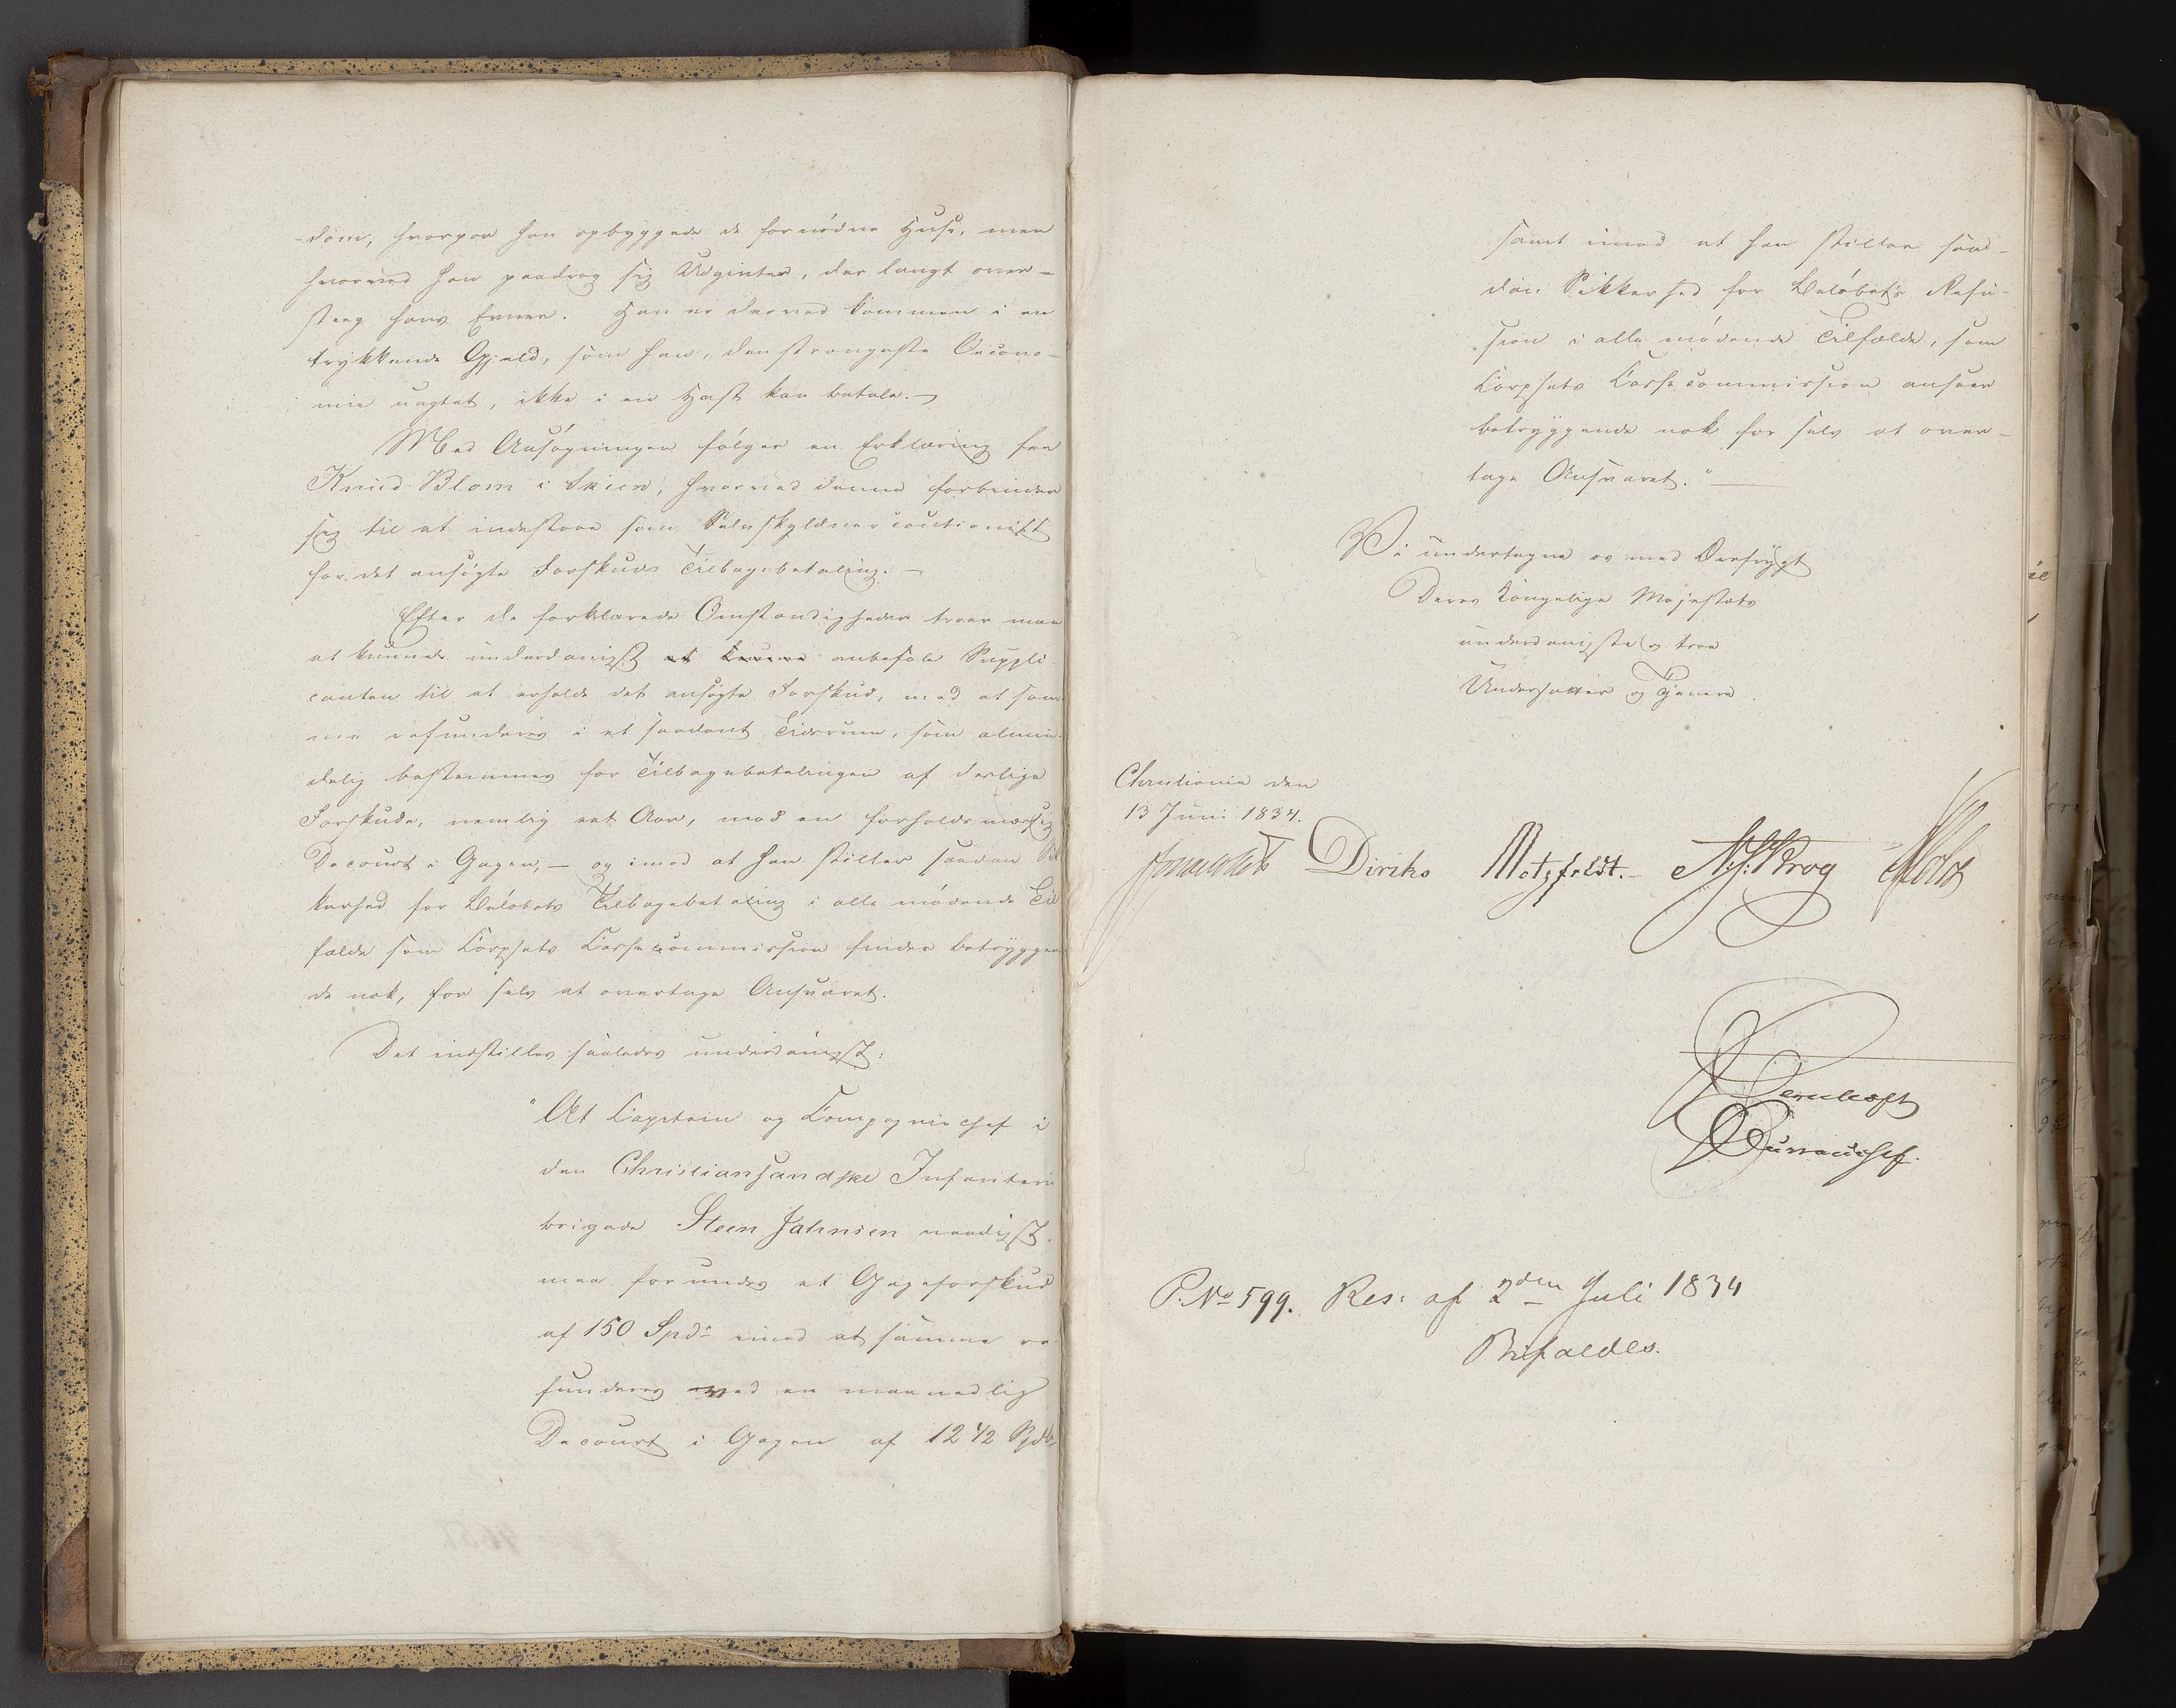 -dom, hvorpaa han opbyggede de fornødne Huse, men
hvorved han paadrog sig Udgivter, der langt over-
steeg hans Evner. Han er derved kommen i en
trykkende Gjæld, som han, den strengeste Oecono-
mie uagtet, ikke i en Hast kan betale. -
Med Ansøgningen følger en Erklæring fra
Knud Blom i Skien, hvorved denne forbinder
sig til at indestaae som Selvskyldnercautionist
for det ansøgte Forskuds Tilbagebetaling. -
Efter de forklarede Omstændigheder troer man
at kunde underdanigst at kunne anbefale Suppli
canten til at erholde det ansøgte Forskud, mod at sam
me refunderes i et saadant Tidsrum, som almin-
delig bestemmes for Tilbagebetalingen af deslige
Forskude, nemlig eet Aar, mod en forholdsmæssig
Decourt i Gagen, - og imod at han stiller saadan Sik
kerhed for Beløbets Tilbagebetaling i alle mødende Til
fælde som Corpsets Cassecommission finder betryggen
de nok, for selv at overtage Ansvaret.
Det indstilles saaledes underdanigst:
"At Capitain og Compagniechef i
den Christiansandske Infanterie
brigade Steen Jahnsen naadigst
maa forundes et Gageforskud
af 150 Spd: imod at samme re-
funderes ved en maanedlig
Decourt i Gagen af 12 1/2 Spd,
samt imod at han stiller saa-
dan Sikkerhed for Beløbets Refu-
sion i alle mødende Tilfælde, som
Corpsets Cassecommission anseer
betryggende nok for selv at over-
tage Ansvaret." -
Vi undertegne os med Dresygt
Deres Kongelige Majestæts
underdanigste og troe
Undersatter og Tjenere.
Christiania den
13 Juni 1834.
Diriks Motzfeldt. - N. J. Krog Holst
Bureauchef.
P. No 599. Res: af 2den Juli 1834
Bifaldes.